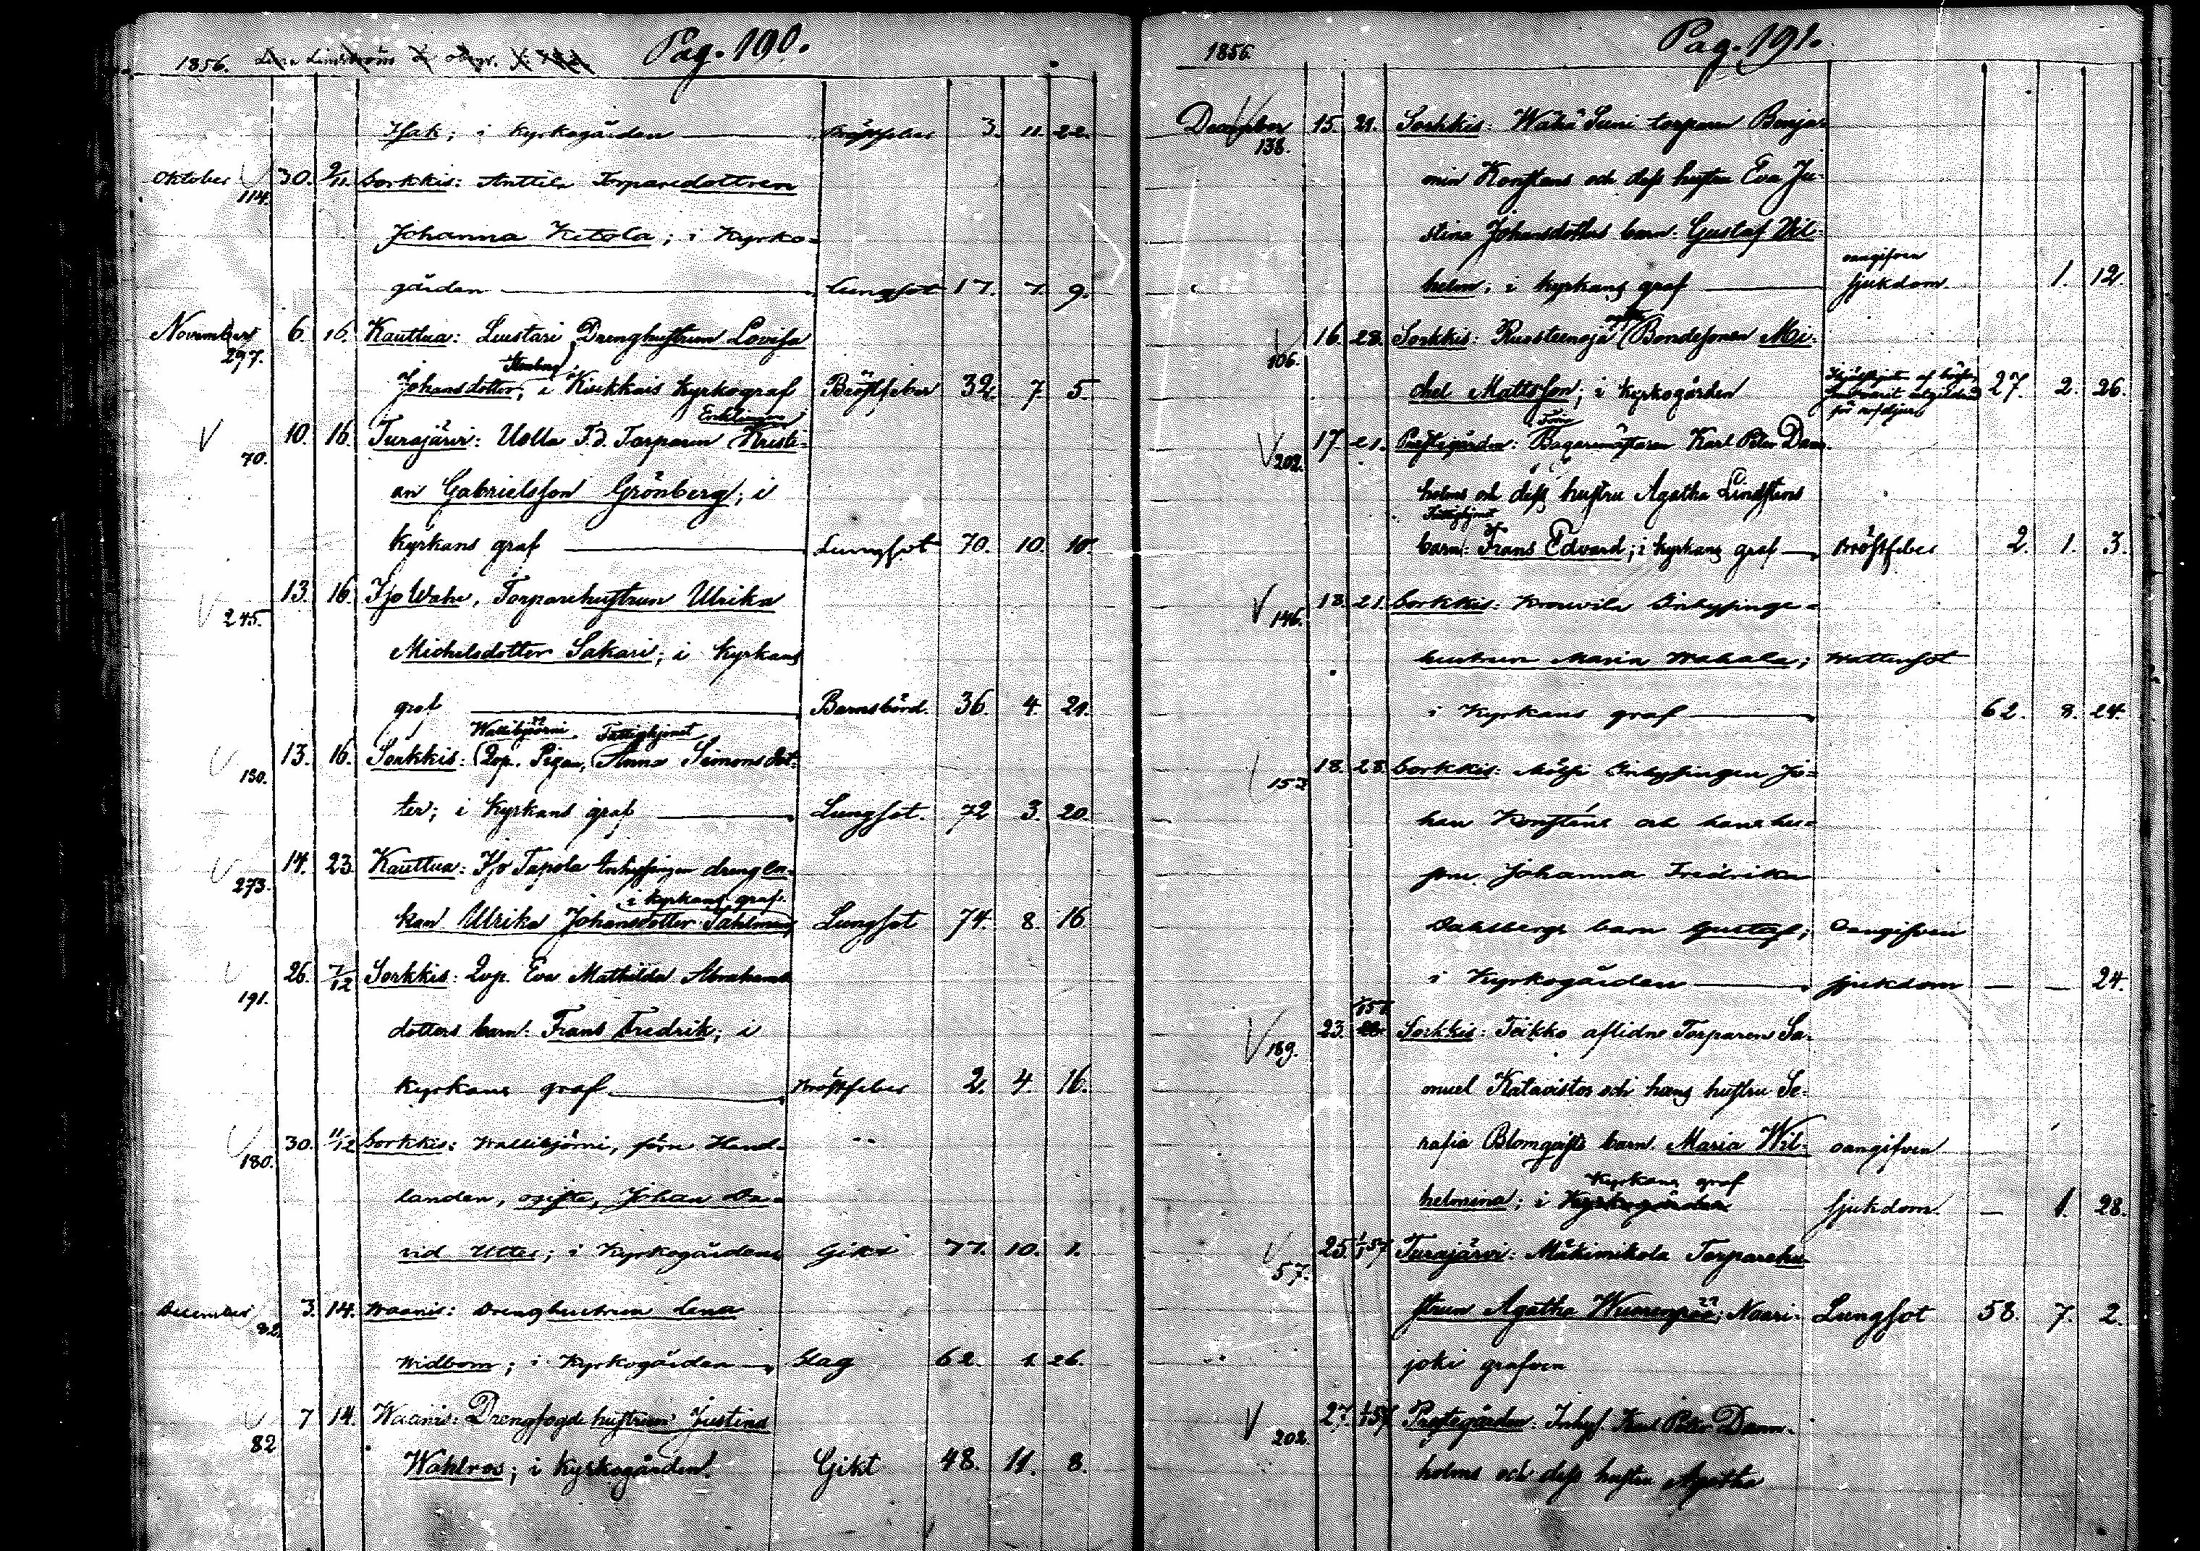 1856. Pag. 190.
Isak; i Kyrkogården Bröstfeber 3. 11. 22.
Oktober 114. 30. 2/11 Sorkkis: Anttila Torparedottren
Johanna Ketola; i Kyrko-
gården Lungsot 17. 7. 9.
November 297. 6. 16. Kauttua: Luustari Drenghustrun Lovisa
Stenberg
Johansdotter; i Kiukkais Kyrkograf Bröstfeber 32. 7. 5.
Enklingen
70. 10. 16. Turajärvi: Uolla F.d. Torparen Kristi-
an Gabrielsson Grönberg; i
Kyrkans graf Lungsot 70. 10. 10.
245. 13. 16. Iso Wahe, Torparehustrun Ulrika
Michelsdotter Sakari; i Kyrkans
graf Barnsbörd. 36. 4. 21.
Wallibjörni Fattighjonet
130. 13. 16. Sorkkis: Qvp. Pigan, Anna Simonsdot-
ter; i Kyrkans graf Lungsot. 72 3. 20.
273. 14. 23. Kauttua: Iso Tapola Inhyssingen drengen-
i Kyrkans graf
kan Ulrika Johansdotter Sahlman Lungsot 74. 8. 16
191. 26. 7/12 Sorkkis: Qvp. Eva Mathilda Abrahams
dotters barn: Frans Fredrik; i
Kyrkans graf Bröstfeber 2. 4. 16.
180. 30. 11/12 Sorkkis: Wallibjörni, förn Hand-
landen, ogifte, Johan Da-
vid Utter; i Kyrkogården Gikt 77. 10. 1.
December 82. 3. 14. Waanis: Drenghustrun Lena
Widbom; i Kyrkogården Slag 62. 1. 26.
82 7 14. Waanis: Drengfogdehustrun Justina
Wahlros; i Kyrkogården. Gikt 48. 11. 8.
1856. Pag. 191.
December 138. 15. 21. Sorkkis: Wähä Suni torparen Benja-
min Konstens och dess hustru Eva Ju-
stina Johansdotters barn: Gustaf Wil-
oangifven
helm; i Kyrkans graf sjukdom. 1. 12.
106. 16. 28. Sorkkis: Ruosteenoja Bondesonen Mi-
chel Mattsson; i Kyrkogården 27. 2. 26.
Förre
202. 17. 21. Prestegården: Bagaremästaren Karl Peter Dam-
holms och dess hustru Agatha Lindstens
barn: Frans Edvard; i Kyrkans graf Bröstfeber 2. 1. 3.
146. 18. 21. Sorkkis: Krouvila Inhyssinge-
hustrun Maria Wahala; Wattensot
i Kyrkans graf 62. 8. 24.
157 18. 28. Sorkkis: Mölsi Inhyssingen Jo-
han Konsténs och hans hus-
tru Johanna Fredrika
Dahlbergs barn Gustaf; Oangifven
i Kyrkogården sjukdom — — 24.
189. 23. Sorkkis: Teikko aflidne Torparen Sa-
muel Katavistos och hans hustru Se-
rafia Blomqvists barn Maria Wil- oangifven
Kyrkans graf
helmina; i Kyrkogården sjukdom. — 1. 28.
57. 25. 1/1 57 Turajärvi: Mäkimikola Torparehu-
strun Agatha Wuorenpää; Naari- Lungsot 58. 7. 2.
joki grafven
202. 27. 1/1 57 Prestegården: Inhys. Karl Peter Dam-
holms och dess hustru Agatha